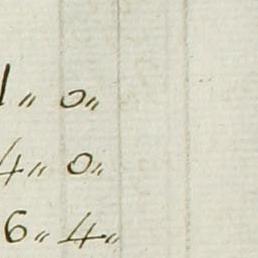 1〃 0〃
4〃 0〃
6〃 4〃